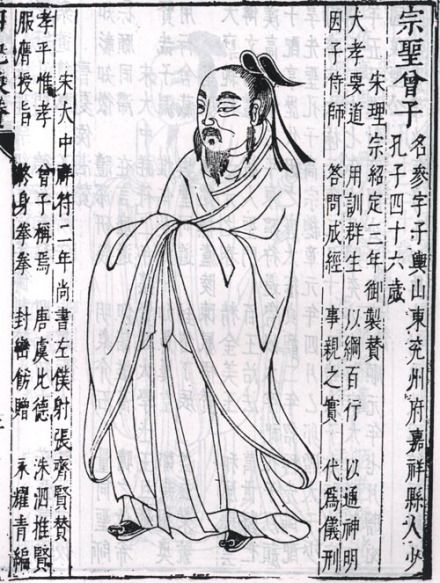 宗聖曾子
名參字子輿山東兗州府嘉祥縣人少
孔子四十六歲
宋理宗紹定三年御製贊
大孝要道 用訓群生 以綱百行 以通神明
因子侍師 答問成經 事親之實 代爲儀刑
宋大中祥符二年尚書左僕射張齊賢贊
孝乎惟孝 曾子稱焉 唐虞比德 洙泗推賢
服膺授旨 終身拳拳 封巒飭贈 永耀青編